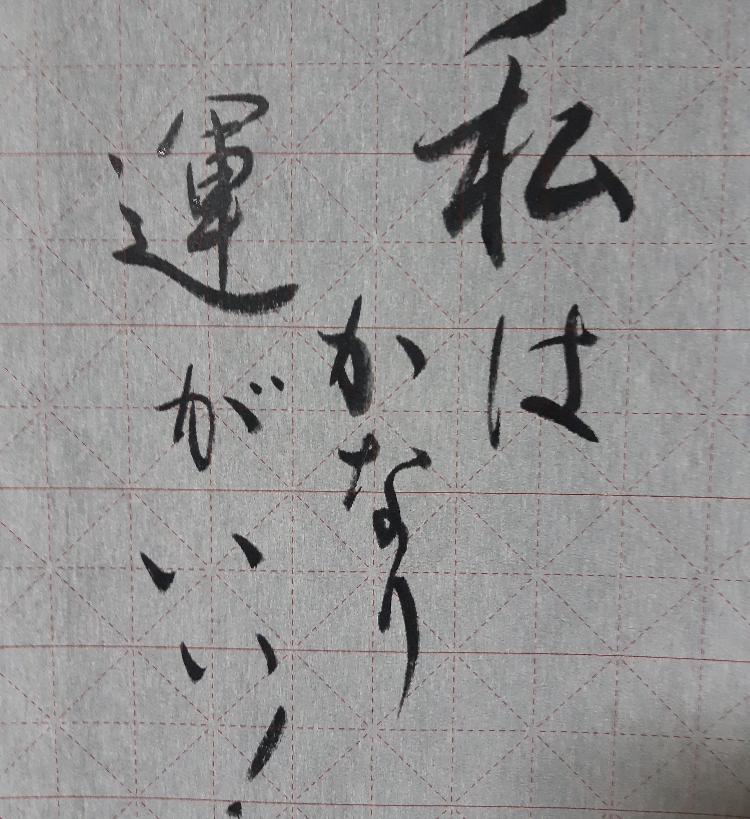 私は
かなり
運がいい!